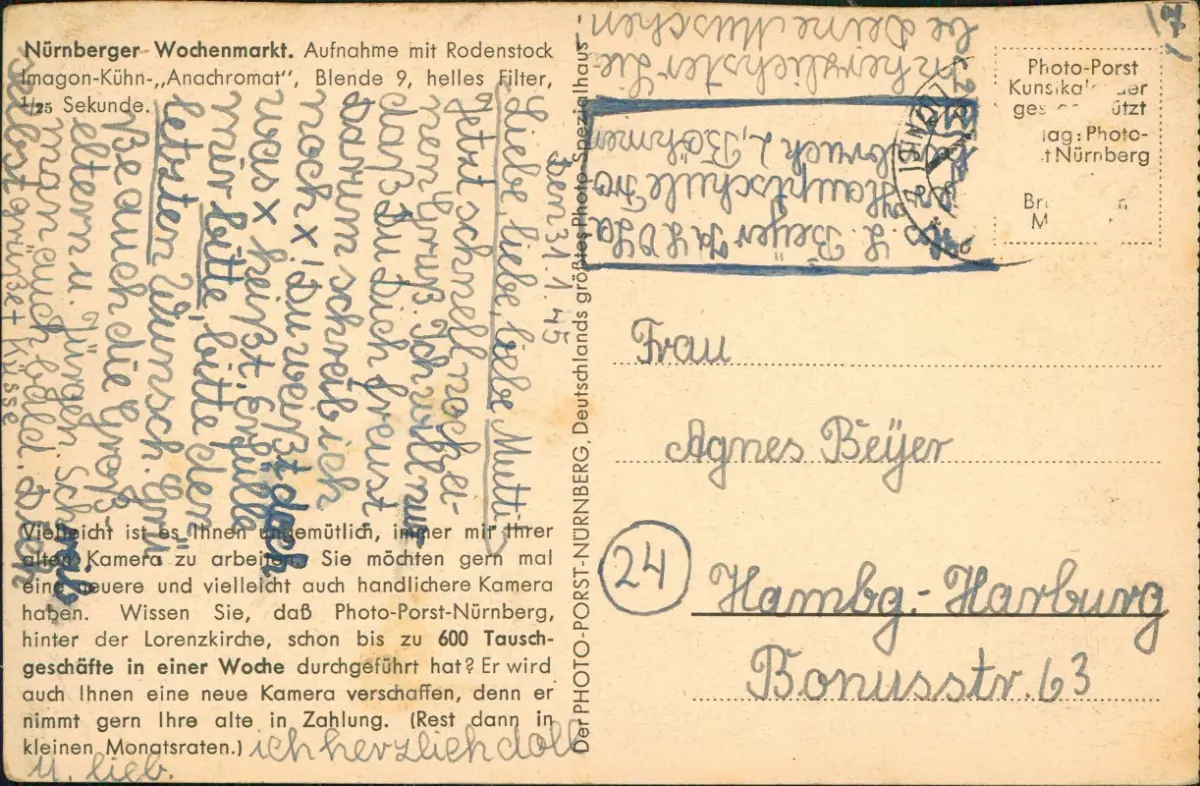 Nürnberger Wochenmarkt. Aufnahme mit Rodenstock
Imagon-Kühn-„Anachromat", Blende 9, helles Filter,
1/25 Sekunde.
den 31.1.45
Liebe, liebe, liebe Mutti
Jetzt schnell noch ei-
nen Gruß. Ich will nur
daß Du Dich freust
darum schreib ich
noch x! Du weißt doch
was x heißt. Erfülle
mir bitte, bitte den
letzten Wunsch. Grü
ße auch die Groß-
eltern u. Jürgen. Schreib
man euch bald. Dein
selbst grüßet + Küsse
ich herzlich doll
u. lieb.
Vielleicht ist es Ihnen ungemütlich, immer mit Ihrer
alten Kamera zu arbeiten. Sie möchten gern mal
eine neuere und vielleicht auch handlichere Kamera
haben. Wissen Sie, daß Photo-Porst-Nürnberg,
hinter der Lorenzkirche, schon bis zu 600 Tausch-
geschäfte in einer Woche durchgeführt hat? Er wird
auch Ihnen eine neue Kamera verschaffen, denn er
nimmt gern Ihre alte in Zahlung. (Rest dann in
kleinen Monatsraten.)
Der PHOTO-PORST-NÜRNBERG, Deutschlands größtes Photo-Spezialhaus
In herzlichster Lie-
be Deine Muschen.
Beyer
Hauptschule
Böhmen
Photo-Porst
Nürnberg
Frau
Agnes Beÿer
24
Hambg.-Harburg
Bonusstr. 63